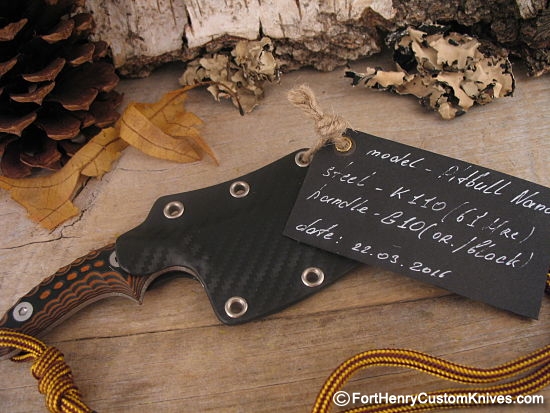 model - Pitbull Nano
steel - K110 (61 Hrc)
handle - G10 (or./black)
date: 22.03.2016
©FortHenryCustomKnives.com